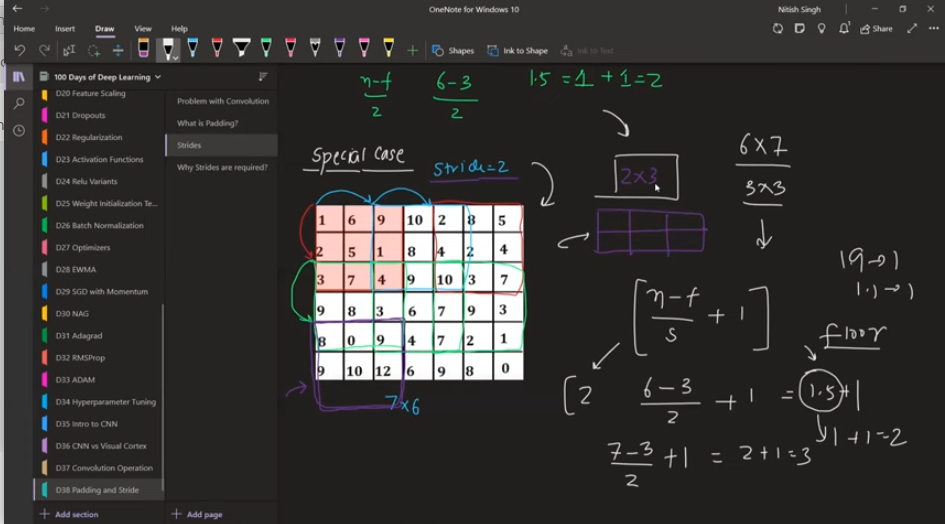 OneNote for Windows 10
Nitish Singh
Home Insert Draw View Help
Share
Shapes
Ink to Shape
Ink to Text
100 Days of Deep Learning
D20 Feature Scaling
D21 Dropouts
D22 Regularization
D23 Activation Functions
D24 Relu Variants
D25 Weight Initialization Te...
D26 Batch Normalization
D27 Optimizers
D28 EWMA
D29 SGD with Momentum
D30 NAG
D31 Adagrad
D32 RMSProp
D33 ADAM
D34 Hyperparameter Tuning
D35 Intro to CNN
D36 CNN vs Visual Cortex
D37 Convolution Operation
D38 Padding and Stride
Add section
Problem with Convolution
What is Padding?
Strides
Why Strides are required?
Add page
n-f
2
6-3
2
1.5 = 1 + 1 = 2
Special Case
Stride=2
1 6 9 10 2 8 5
2 5 1 8 4 2 4
3 7 4 9 10 3 7
9 8 3 6 7 9 3
8 0 9 4 7 2 1
9 10 12 6 9 8 0
7×6
2×3
6×7
3×3
[n-f
s
+ 1]
19→1
1.1→1
floor
[2
6-3
2
+ 1 = 1.5+1
1+1=2
7-3
2
+1 = 2+1=3